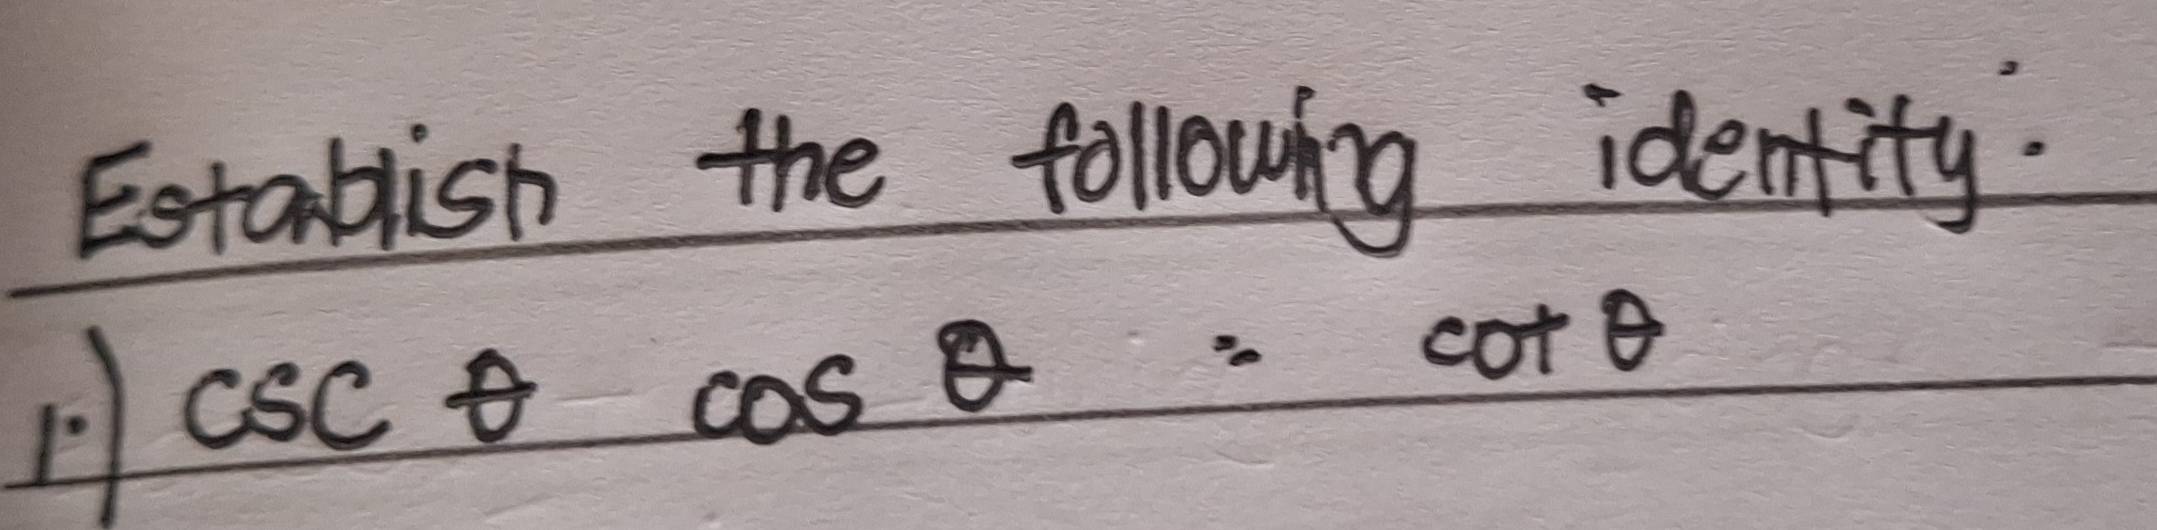 Establish the following identity.
1.) csc θ cos θ = cot θ